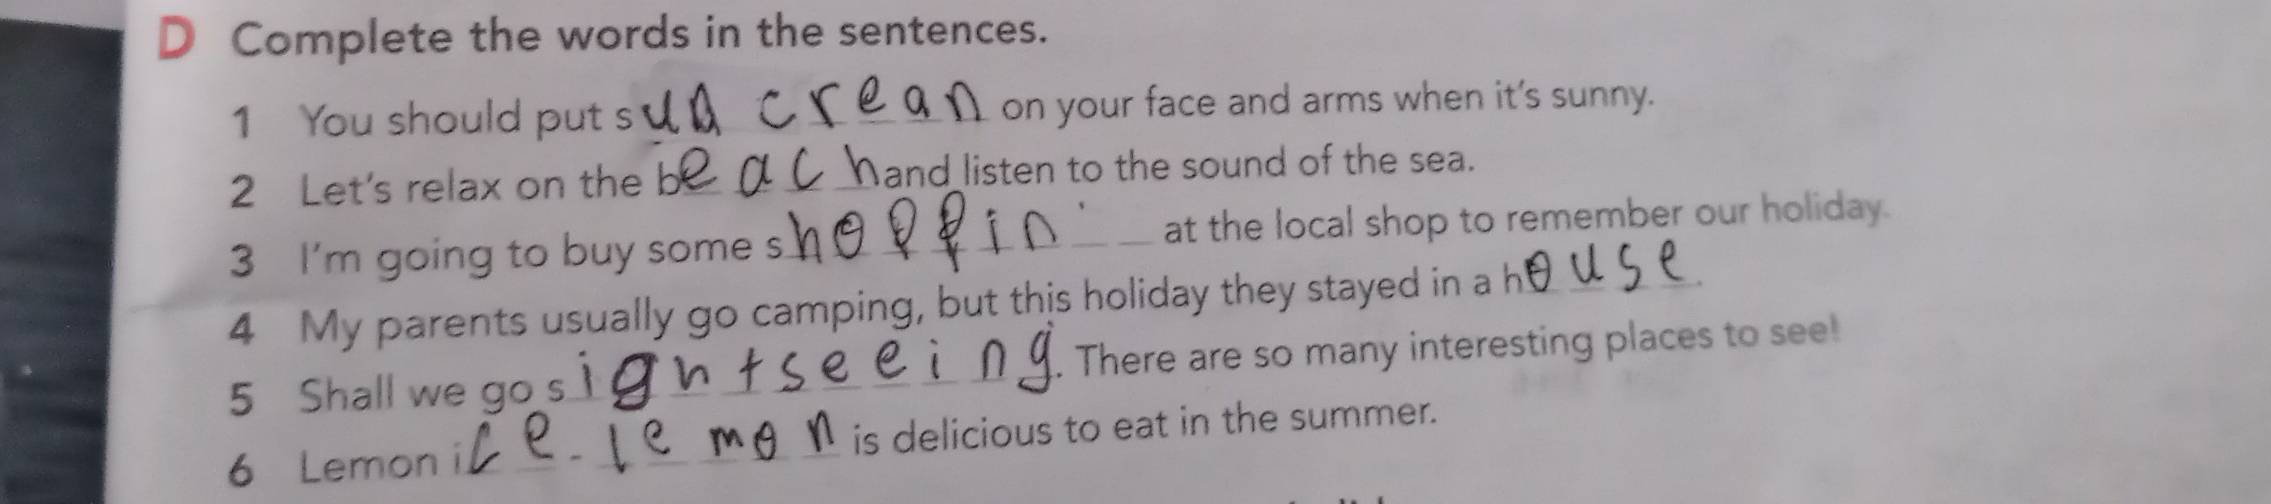 D Complete the words in the sentences.
1 You should put sun crean on your face and arms when it's sunny.
2 Let's relax on the beach and listen to the sound of the sea.
3 I'm going to buy some shoppin__ at the local shop to remember our holiday.
4 My parents usually go camping, but this holiday they stayed in a house.
5 Shall we go sightseeing. There are so many interesting places to see!
6 Lemon ice-lemon is delicious to eat in the summer.